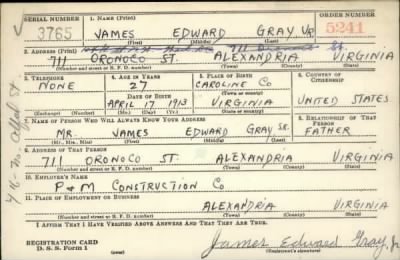 SERIAL NUMBER 1. NAME (Print) ORDER NUMBER
3765 JAMES EDWARD GRAY JR 5241
(First) (Middle) (Last)
2. ADDRESS (Print)
711 ORONOCO ST. ALEXANDRIA VIRGINIA
(Number and street or R. F. D. number) (Town) (County) (State)
3. TELEPHONE 4. AGE IN YEARS 5. PLACE OF BIRTH 6. COUNTRY OF CITIZENSHIP
NONE 27 CAROLINE CO
DATE OF BIRTH
APRIL 17 1913 VIRGINIA UNITED STATES
(Exchange) (Number) (Mo.) (Day) (Yr.) (State or country)
7. NAME OF PERSON WHO WILL ALWAYS KNOW YOUR ADDRESS 8. RELATIONSHIP OF THAT PERSON
MR. JAMES EDWARD GRAY SR. FATHER
(Mr., Mrs., Miss) (First) (Middle) (Last)
9. ADDRESS OF THAT PERSON
711 ORONOCO ST. ALEXANDRIA VIRGINIA
(Number and street or R. F. D. number) (Town) (County) (State)
10. EMPLOYER'S NAME
P & M CONSTRUCTION CO
11. PLACE OF EMPLOYMENT OR BUSINESS
ALEXANDRIA VIRGINIA
(Number and street or R. F. D. number) (Town) (County) (State)
I AFFIRM THAT I HAVE VERIFIED ABOVE ANSWERS AND THAT THEY ARE TRUE.
REGISTRATION CARD
D. S. S. Form 1
James Edward Gray, Jr
(Registrant's signature)